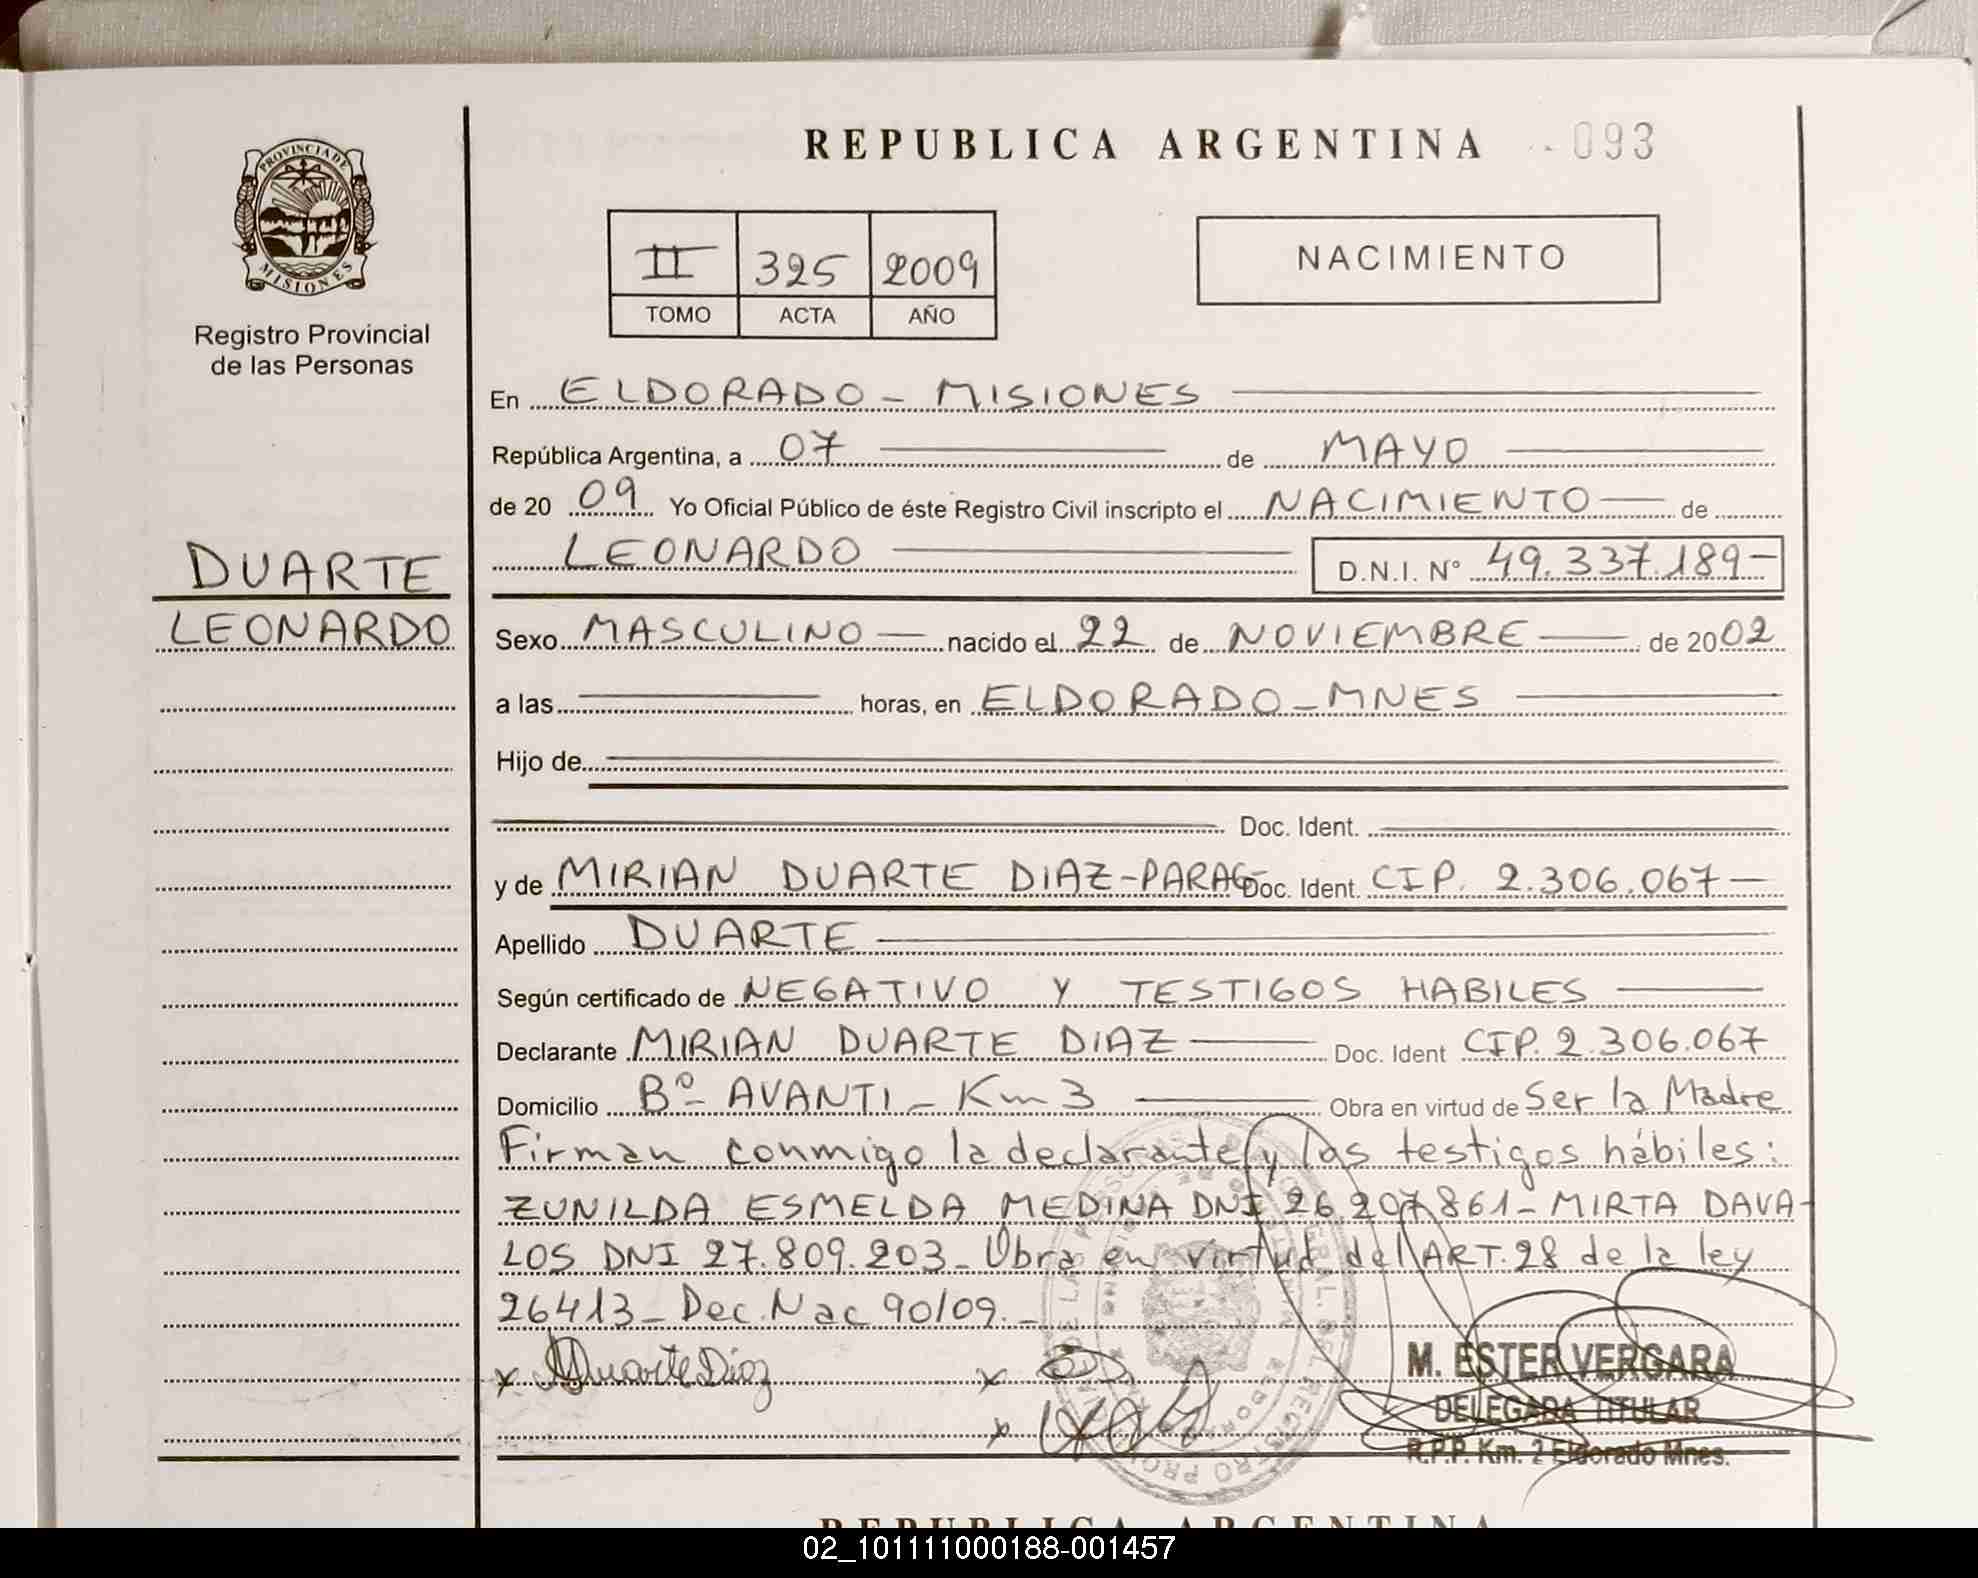 REPUBLICA ARGENTINA 093
PROVINCIA DE
MISIONES
Registro Provincial
de las Personas
II 325 2009
TOMO ACTA AÑO
NACIMIENTO
En ELDORADO - MISIONES
República Argentina, a 07 de MAYO
de 20 09 Yo Oficial Público de éste Registro Civil inscripto el NACIMIENTO de
LEONARDO D.N.I. N° 49.337.189-
DUARTE
LEONARDO
Sexo MASCULINO nacido el 22 de NOVIEMBRE de 20 02
a las horas, en ELDORADO - MNES
Hijo de
Doc. Ident.
y de MIRIAN DUARTE DIAZ-PARAG Doc. Ident. CIP. 2.306.067
Apellido DUARTE
Según certificado de NEGATIVO Y TESTIGOS HABILES
Declarante MIRIAN DUARTE DIAZ Doc. Ident CIP. 2.306.067
Domicilio Bº AVANTI - Km 3 Obra en virtud de Ser la Madre
Firman conmigo la declarante y las testigos hábiles:
ZUNILDA ESMELDA MEDINA DNI 26.207.861 - MIRTA DAVA-
LOS DNI 27.809.203 - Obra en virtud del ART. 28 de la ley
26413 - Dec. Nac 90/09. -
x MDuarteDiaz x
x
M. ESTER VERGARA
DELEGADA TITULAR
R.P.P. Km. 2 Eldorado Mnes.
REPUBLICA ARGENTINA
02_101111000188-001457